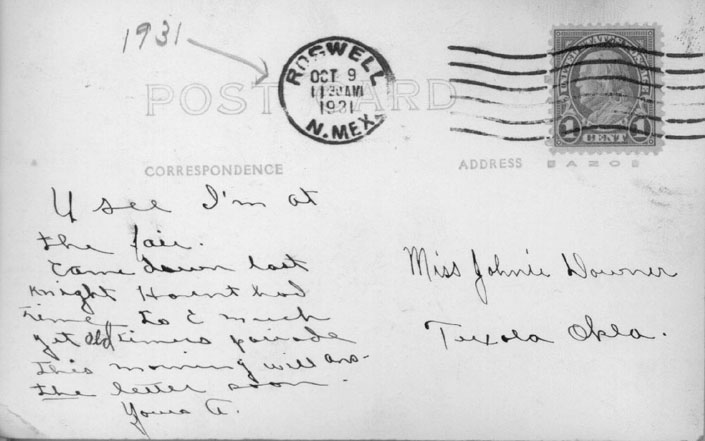 1931
ROSWELL
OCT 9
11 30 AM
1931
N. MEX.
POST CARD
UNITED STATES POSTAGE
1 CENT 1
CORRESPONDENCE
ADDRESS
U see I'm at
the fair.
Came down last
Knight Havnt had
time to C much
yet old timers parade
this morning will ans-
the letter soon.
Yours A.
Miss Johnie Downer
Texola Okla.